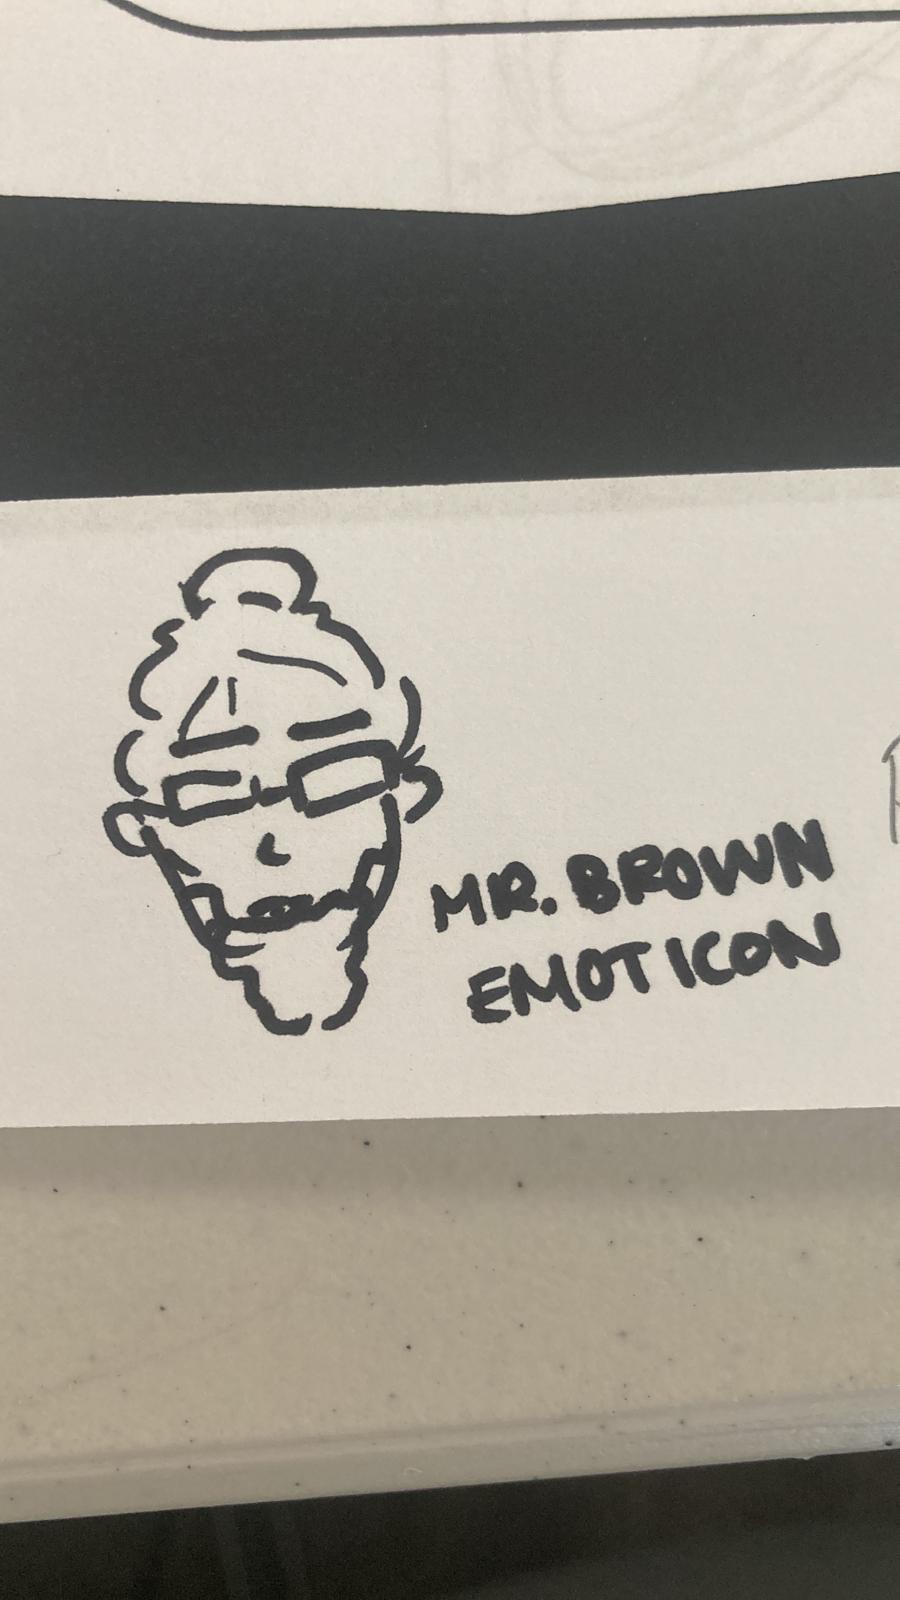 MR. BROWN
EMOTICON